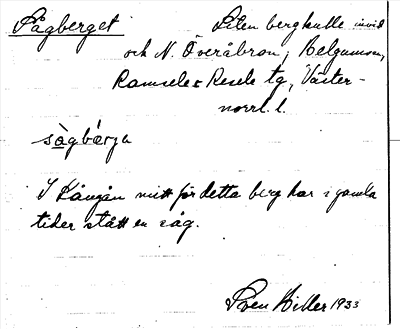 Sågberget Liten bergkulle invid
och N. Överåbron, Helgumsån,
Ramsele o Resele tg, Väster-
norrl. l.
sågbærga
I Långån mitt för detta berg har i gamla
tider stått en såg.
Sven Hiller 1933